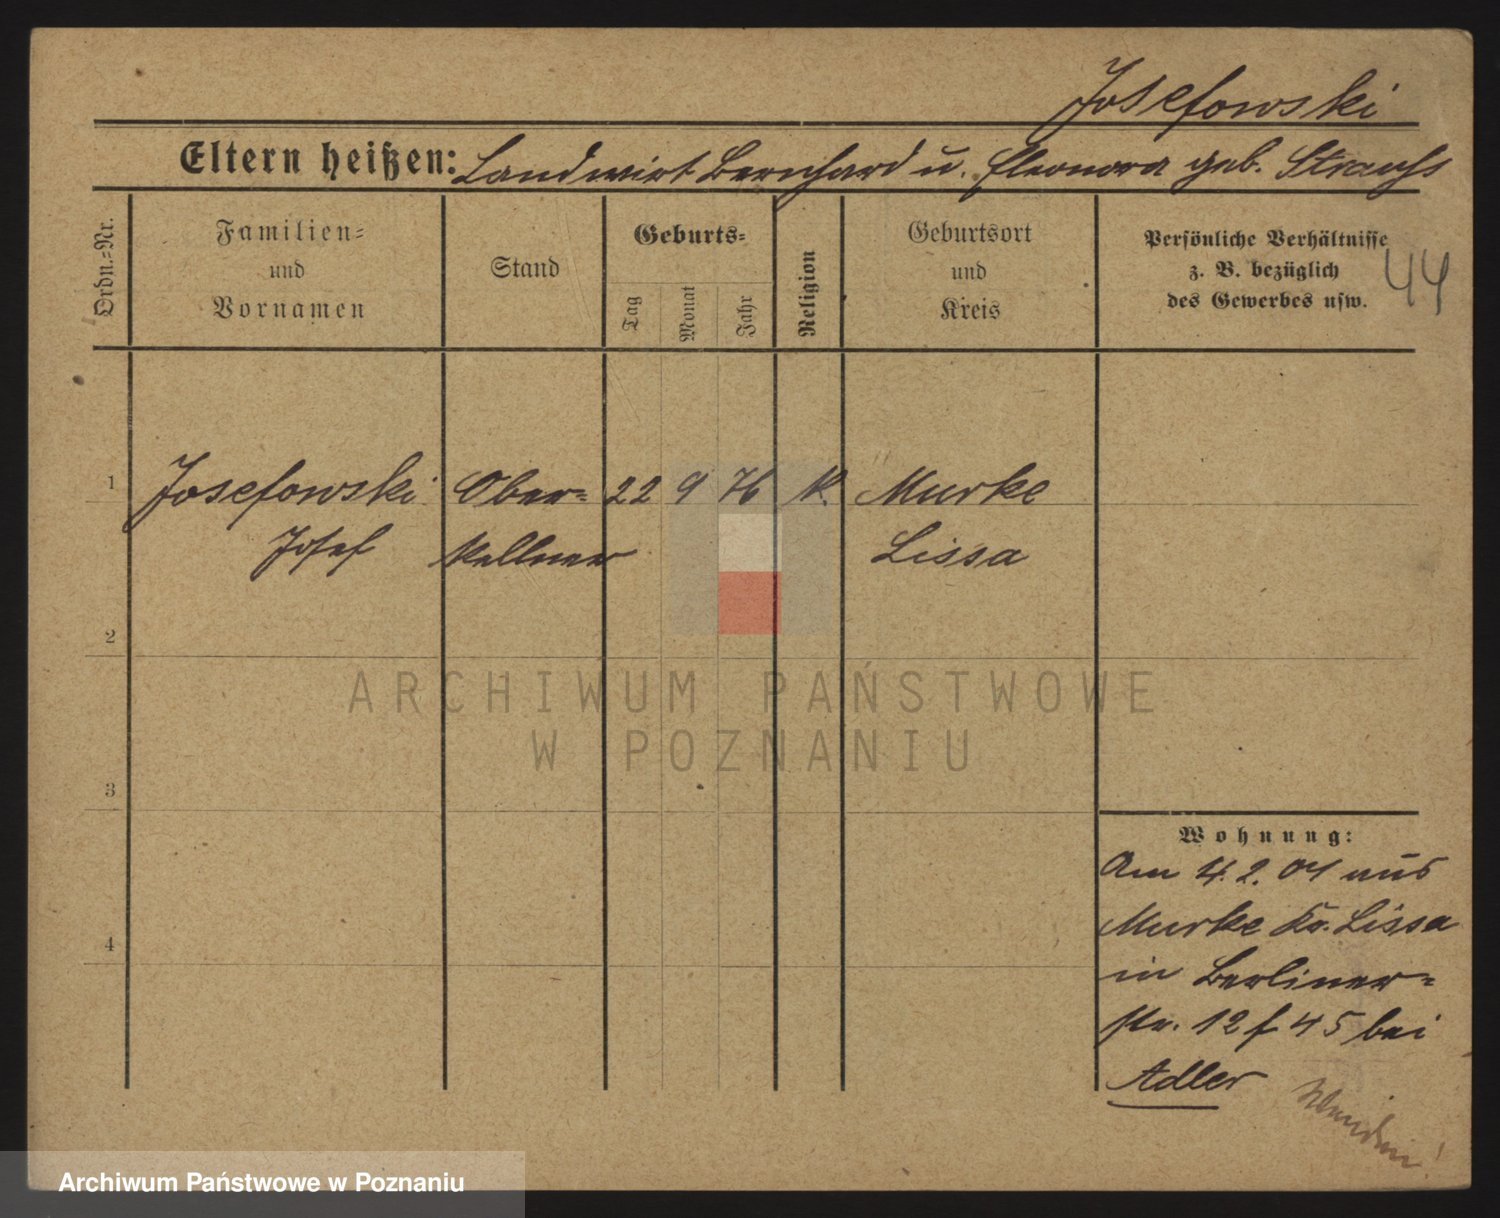 Josefowski
Eltern heißen: Landwirt Bernhard u. Eleonora geb. Strauchs
Ordn.-Nr.
Familien-
und
Vornamen
Stand
Geburts-
Tag
Monat
Jahr
Religion
Geburtsort
und
Kreis
Persönliche Verhältnisse
z. B. bezüglich
des Gewerbes usw.
44
1 Josefowski Ober- 22 9 76 k. Murke
Josef Kellner Lissa
2
3
4
ARCHIWUM PAŃSTWOWE
W POZNANIU
Wohnung:
Am 4.2.04 aus
Murke Kr. Lissa
in Berliner-
str. 12 f 45 bei
Adler
Wenden!
Archiwum Państwowe w Poznaniu